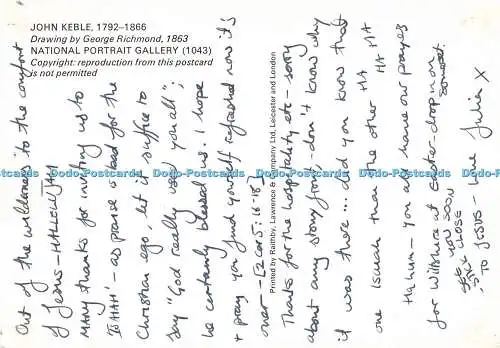 JOHN KEBLE, 1792–1866
Drawing by George Richmond, 1863
NATIONAL PORTRAIT GALLERY (1043)
Copyright: reproduction from this postcard
is not permitted
Printed by Raithby, Lawrence & Company Ltd, Leicester and London
Out of the wilderness to the comfort
of Jesus - HALLELUJAH
Many thanks for inviting us to
'ISAIAH' - as praise is bad for the
Christian ego, let it suffice to
say "God really used you all";
he certainly blessed us. I hope
& pray you find yourself refreshed now it's
over - [2 Cor 5. 16-18]
Thanks for the hospitality etc - sorry
about any story from - don't know why
it was there... did you know that
one Isaiah than the other HA HA HA
Ha hum - you have our prayers
for Wiltshire at easter - drop in on
soon
SEE YOU SOON
STICK CLOSE
TO JESUS - Love X
Dodo-Postcards Dodo-Postcards Dodo-Postcards Dodo-Postcards Dodo-Postcards
Dodo-Postcards Dodo-Postcards Dodo-Postcards Dodo-Postcards Dodo-Postcards